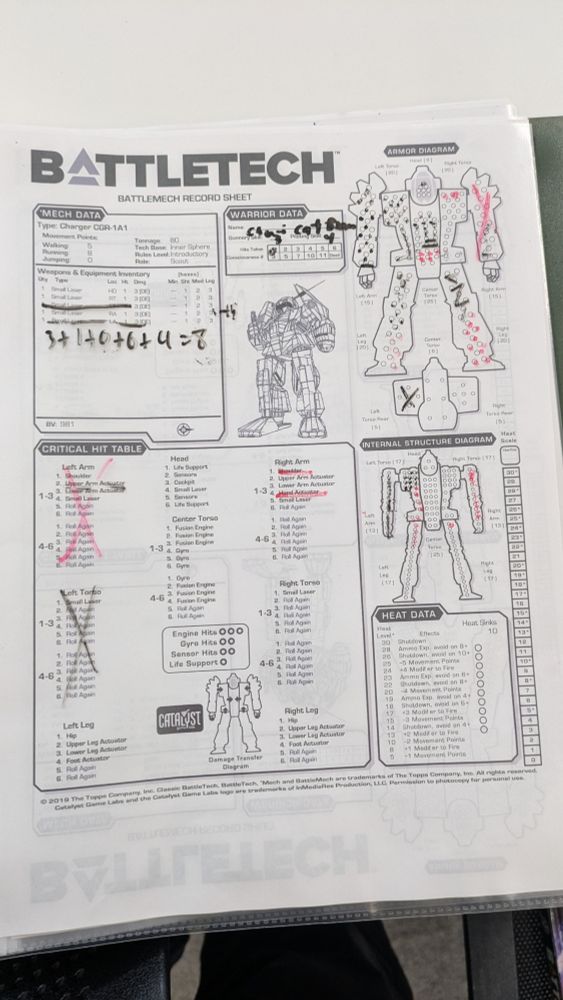 BATTLETECH™
BATTLEMECH RECORD SHEET
'MECH DATA
Type: Charger CGR-1A1
Movement Points:
Walking: 5
Running: 8
Jumping: 0
Tonnage: 80
Tech Base: Inner Sphere
Rules Level: Introductory
Role: Scout
Weapons & Equipment Inventory (hexes)
Qty Type Loc Ht Dmg Min Sht Med Lng
1 Small Laser HD 1 3 [DE] — 1 2 3
1 Small Laser RT 1 3 [DE] — 1 2 3
3+1+0+6+4=8
BV: 981
WARRIOR DATA
Name:
Hits Taken 1 2 3 4 5 6
Consciousness # 3 5 7 10 11 Dead
ARMOR DIAGRAM
Head (9)
Left Torso
Right Torso
Left Arm
Center Torso
Right Arm
Left Leg
Right Leg
Center Torso
Left Torso Rear
Right Torso Rear
CRITICAL HIT TABLE
Left Arm
1. Shoulder
2. Upper Arm Actuator
3. Lower Arm Actuator
4. Small Laser
5. Roll Again
6. Roll Again
1-3
1. Roll Again
2. Roll Again
3. Roll Again
4. Roll Again
5. Roll Again
6. Roll Again
4-6
Left Torso
1. Small Laser
2. Roll Again
3. Roll Again
4. Roll Again
5. Roll Again
6. Roll Again
1-3
1. Roll Again
2. Roll Again
3. Roll Again
4. Roll Again
5. Roll Again
6. Roll Again
4-6
Left Leg
1. Hip
2. Upper Leg Actuator
3. Lower Leg Actuator
4. Foot Actuator
5. Roll Again
6. Roll Again
Head
1. Life Support
2. Sensors
3. Cockpit
4. Small Laser
5. Sensors
6. Life Support
Center Torso
1. Fusion Engine
2. Fusion Engine
3. Fusion Engine
4. Gyro
5. Gyro
6. Gyro
1-3
1. Gyro
2. Fusion Engine
3. Fusion Engine
4. Fusion Engine
5. Roll Again
6. Roll Again
4-6
Engine Hits
Gyro Hits
Sensor Hits
Life Support
CATALYST
Damage Transfer
Diagram
Right Arm
1. Shoulder
2. Upper Arm Actuator
3. Lower Arm Actuator
4. Hand Actuator
5. Small Laser
6. Roll Again
1-3
1. Roll Again
2. Roll Again
3. Roll Again
4. Roll Again
5. Roll Again
6. Roll Again
4-6
Right Torso
1. Small Laser
2. Roll Again
3. Roll Again
4. Roll Again
5. Roll Again
6. Roll Again
1-3
1. Roll Again
2. Roll Again
3. Roll Again
4. Roll Again
5. Roll Again
6. Roll Again
4-6
Right Leg
1. Hip
2. Upper Leg Actuator
3. Lower Leg Actuator
4. Foot Actuator
5. Roll Again
6. Roll Again
INTERNAL STRUCTURE DIAGRAM
Head
Left Torso (17)
Right Torso (17)
Left Arm (13)
Center Torso (25)
Right Arm (13)
Left Leg (17)
Right Leg (17)
Heat Scale
HEAT DATA
Heat Level* Effects
Heat Sinks 10
30 Shutdown
28 Ammo Exp. avoid on 8+
26 Shutdown, avoid on 10+
25 -5 Movement Points
24 +4 Modifier to Fire
23 Ammo Exp. avoid on 6+
22 Shutdown, avoid on 8+
20 -4 Movement Points
19 Ammo Exp. avoid on 4+
18 Shutdown, avoid on 6+
17 +3 Modifier to Fire
15 -3 Movement Points
14 Shutdown, avoid on 4+
13 +2 Modifier to Fire
10 -2 Movement Points
8 +1 Modifier to Fire
5 -1 Movement Points
© 2019 The Topps Company, Inc. Classic BattleTech, BattleTech, 'Mech and BattleMech are trademarks of The Topps Company, Inc. All rights reserved.
Catalyst Game Labs and the Catalyst Game Labs logo are trademarks of InMediaRes Production, LLC. Permission to photocopy for personal use.